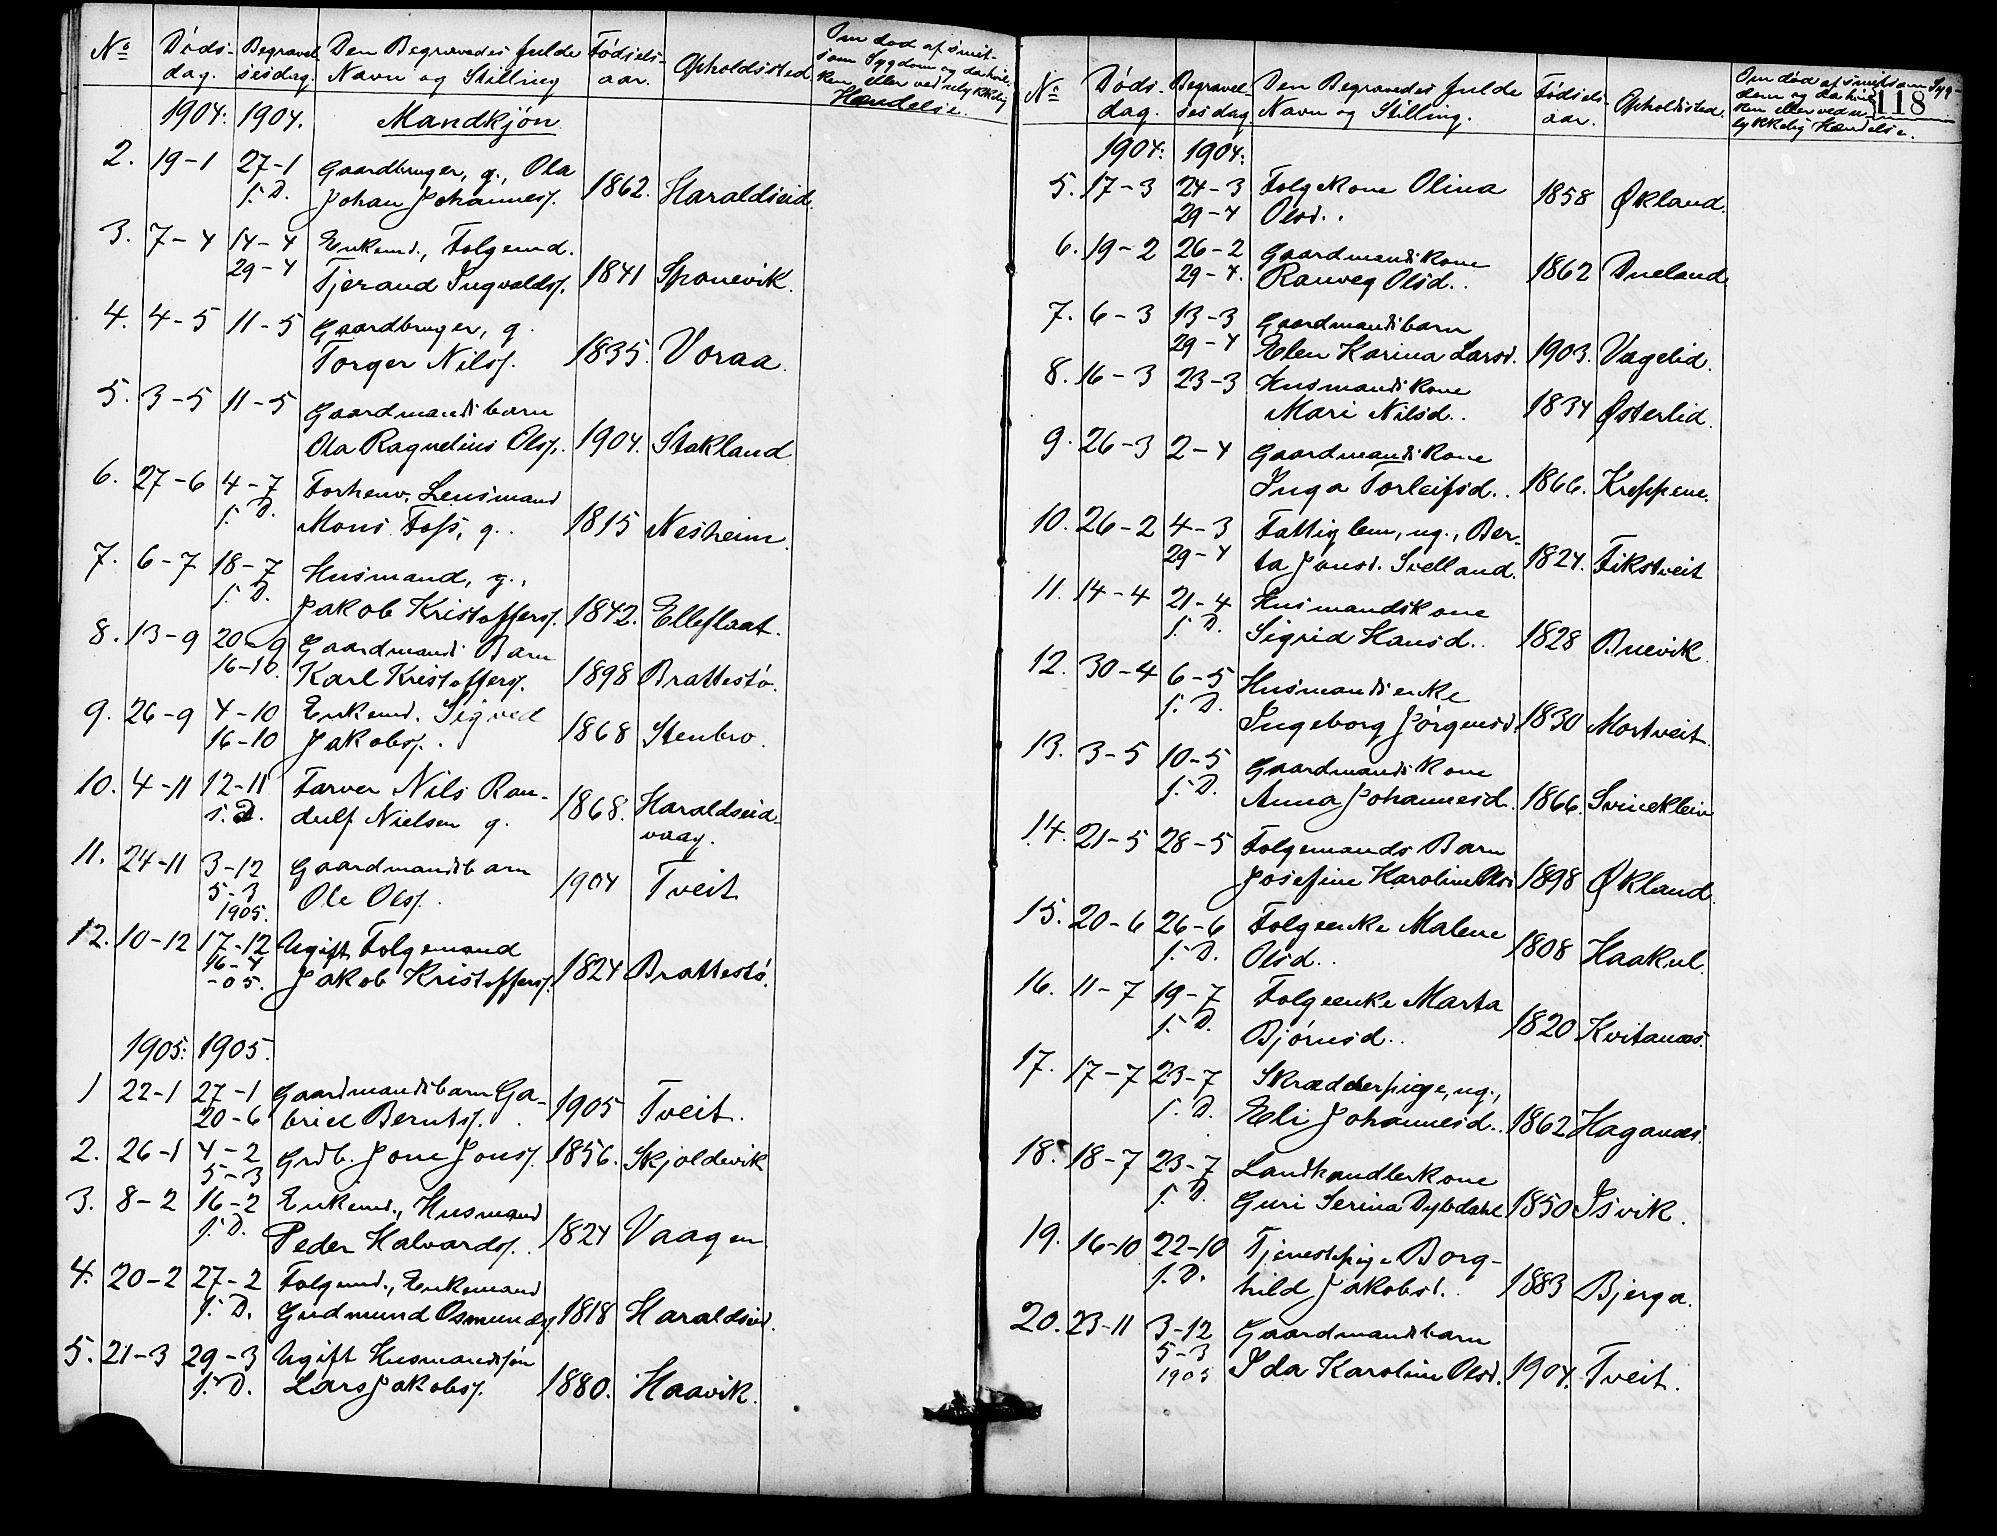 No Døds- dag. Begravel- sesdag. Den Begravedes fulde Navn og Stilling Fødsels- aar. Opholdssted Om død af smit- som Sygdom og da hvil- ken, eller ved ulykkelig Hændelse.
1904: 1904. Mandkjön
2. 19-1 27-1 Gaardbruger, g., Ola
s. D. Johan Johanness. 1862. Haraldseid.
3. 7-4 14-4 Enkemd., Folgemd.
29-4 Tjerand Ingvaldss. 1841 Sponevik.
4. 4-5 11-5 Gaardbruger, g.
Torger Nilss. 1835. Voraa.
5. 3-5 11-5 Gaardmandsbarn
Ola Ragnelius Olss. 1904. Stakland
6. 27-6 4-7 Forhenv. Lensmand
s. D. Mons Foss, g.. 1815 Nesheim.
7. 6-7 18-7 Husmand, g.,
s. D. Jakob Kristoffers. 1842. Elleflaat.
8. 13-9 20-9 Gaardmands Barn
16-10. Karl Kristoffers. 1898 Brattestö.
9. 26-9 4-10 Enkemd. Sigved
16-10 Jakobs. 1868 Stenbro.
10. 4-11 12-11 Farver Nils Ran-
s. D. dulf Nielsen g. 1868. Haraldseid-
vaag.
11. 24-11 3-12 Gaardmandsbarn
5-3 Ole Olss. 1904 Tveit
1905.
12. 10-12 17-12 Ugift Folgemand
16-4 Jakob Kristoffers. 1824 Brattestö.
-05.
1905: 1905.
1 22-1 27-1 Gaardmandsbarn Ga-
20-6 briel Bernts. 1905 Tveit.
2. 26-1 4-2 Grdb. Jone Jons. 1856. Skjoldevik
5-3
3. 8-2 16-2 Enkemd., Husmand
s. D. Peder Halvards. 1824 Vaagen
4. 20-2 27-2 Folgemd., Enkemand
s. D. Gudmund Osmunds. 1818 Haraldseid.
5. 21-3 29-3 Ugift Husmandssøn
s. D. Lars Jakobs. 1880. Haavik.
No Døds- dag. Begravel- sesdag Den Begravedes fulde Navn og Stilling. Fødsels- aar. Opholdssted. Om død af smitsom Syg- dom og da hvil- ken eller ved u- lykkelig Hændelse.
118
1904: 1904:
5. 17-3 24-3 Folgekone Olina
29-4 Olsd.. 1858 Økland.
6. 19-2 26-2 Gaardmandskone
29-4. Ranveg Olsd.. 1862 Dueland.
7. 6-3 13-3 Gaardmandsbarn
29-4 Elen Karina Larsd. 1903. Vagelid.
8. 16-3 23-3 Husmandskone
Mari Nilsd.. 1834 Østerlid.
9. 26-3 2-4 Gaardmandskone
Inga Torleifsd.. 1866. Kreppene.
10. 26-2 4-3 Fattiglem, ug., Ber-
29-4 ta Jonsd. Svelland. 1824. Fikstveit
11. 14-4 21-4 Husmandskone
s. D. Sigrid Hansd.. 1828 Buevik.
12. 30-4 6-5 Husmandsenke
s. D. Ingeborg Jørgensd. 1830 Mortveit.
13. 3-5 10-5 Gaardmandskone
s. D. Anna Johannesd. 1866. Svinekleiv
14. 21-5 28-5 Folgemands Barn
Josefine Karoline Olsd. 1898 Økland.
15. 20-6 26-6 Folgeenke Malene
s. D. Olsd.. 1808 Haakul.
16. 11-7 19-7 Folgeenke Marta
s. D. Bjørnsd.. 1820 Kvitanæs.
17. 17-7 23-7 Skrædderpige, ug.,
s. D. Eli Johannesd.. 1862 Haganæs.
18. 18-7 23-7 Landhandlerkone
s. D. Guri Serina Dybdahl 1850 Isvik.
19. 16-10 22-10 Tjenestpige Borg-
s. D. hild Jakobsd.. 1883 Bjerga.
20. 23-11 3-12 Gaardmandsbarn
5-3 Ida Karoline Olsd. 1904. Tveit.
1905